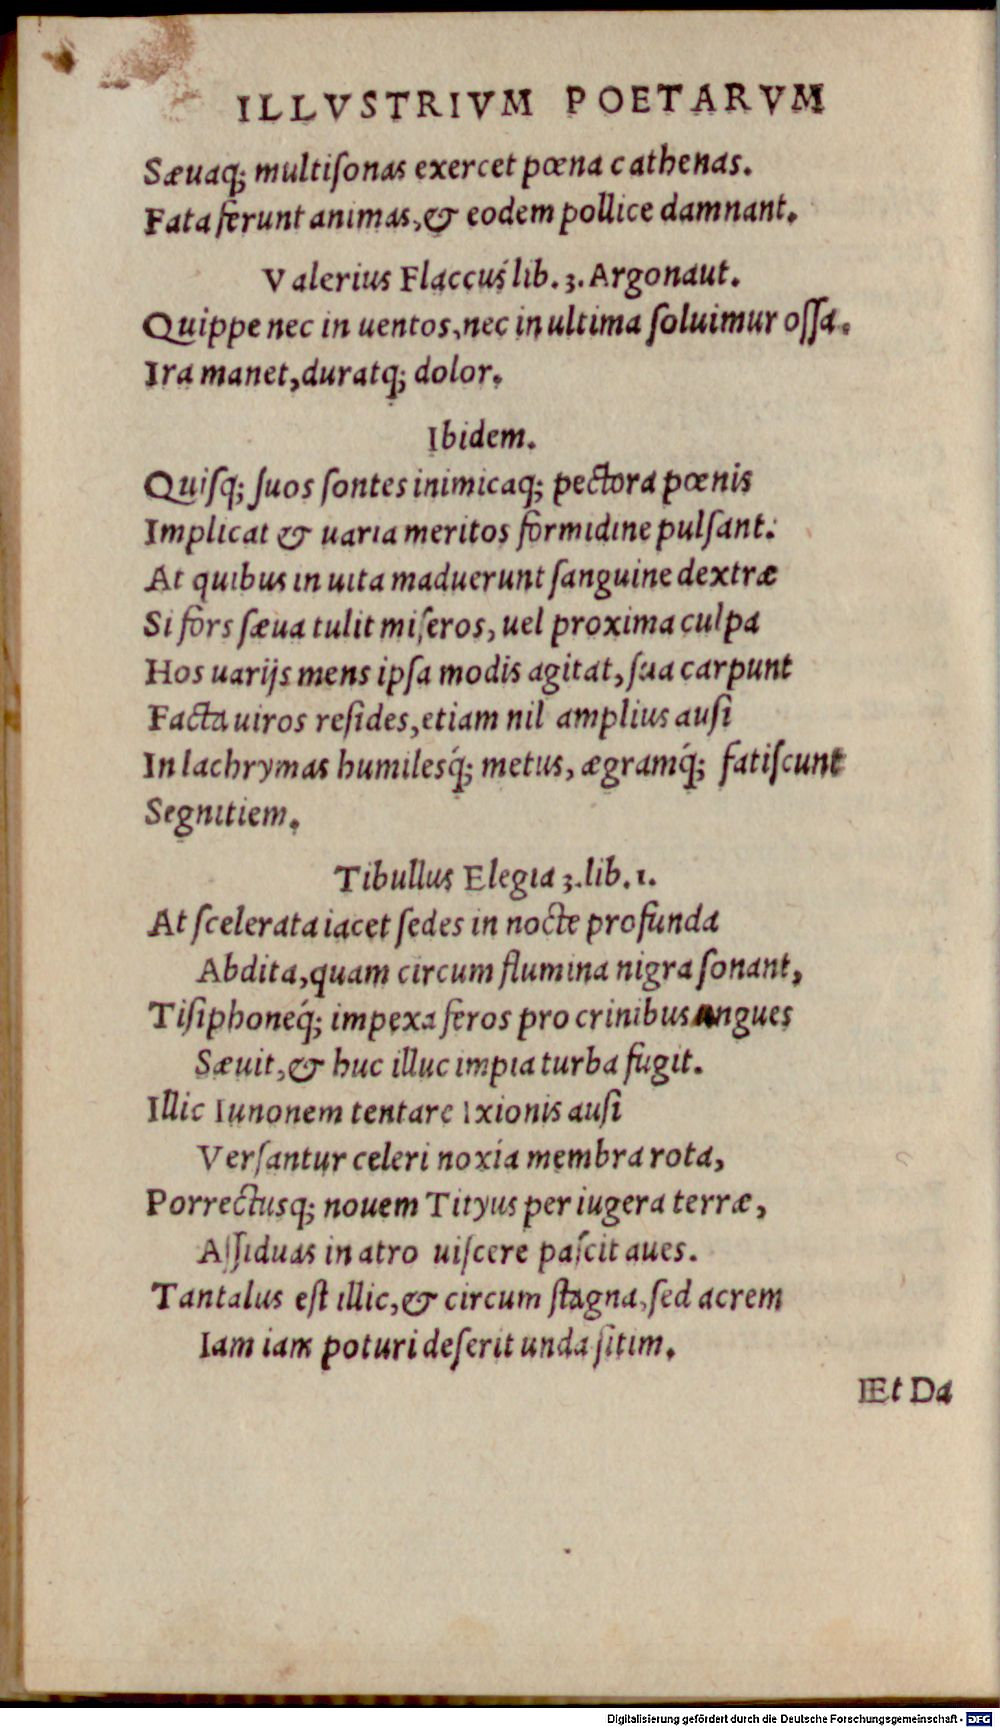 ILLVSTRIVM POETARVM
Sæuaq; multiſonas exercet pœna cathenas.
Fata ferunt animas, & eodem pollice damnant.
Valerius Flaccus lib. 3. Argonaut.
Quippe nec in uentos, nec in ultima ſoluimur oſſa.
Ira manet, duratq; dolor.
Ibidem.
Quiſq; ſuos ſontes inimicaq; pectora pœnis
Implicat & uaria meritos formidine pulſant:
At quibus in uita maduerunt ſanguine dextræ
Si fors ſæua tulit miſeros, uel proxima culpa
Hos uarijs mens ipſa modis agitat, ſua carpunt
Facta uiros reſides, etiam nil amplius auſi
In lachrymas humilesq́; metus, ægramq́; fatiſcunt
Segnitiem.
Tibullus Elegia 3. lib. 1.
At ſcelerata iacet ſedes in nocte profunda
Abdita, quam circum flumina nigra ſonant,
Tiſiphoneq́; impexa feros pro crinibus angues
Sæuit, & huc illuc impia turba fugit.
Illic Iunonem tentare Ixionis auſi
Verſantur celeri noxia membra rota,
Porrectusq; nouem Tityus per iugera terræ,
Aſſiduas in atro uiſcere paſcit aues.
Tantalus eſt illic, & circum ſtagna, ſed acrem
Iam iam poturi deſerit unda ſitim.
Et Da
Digitalisierung gefördert durch die Deutsche Forschungsgemeinschaft - DFG